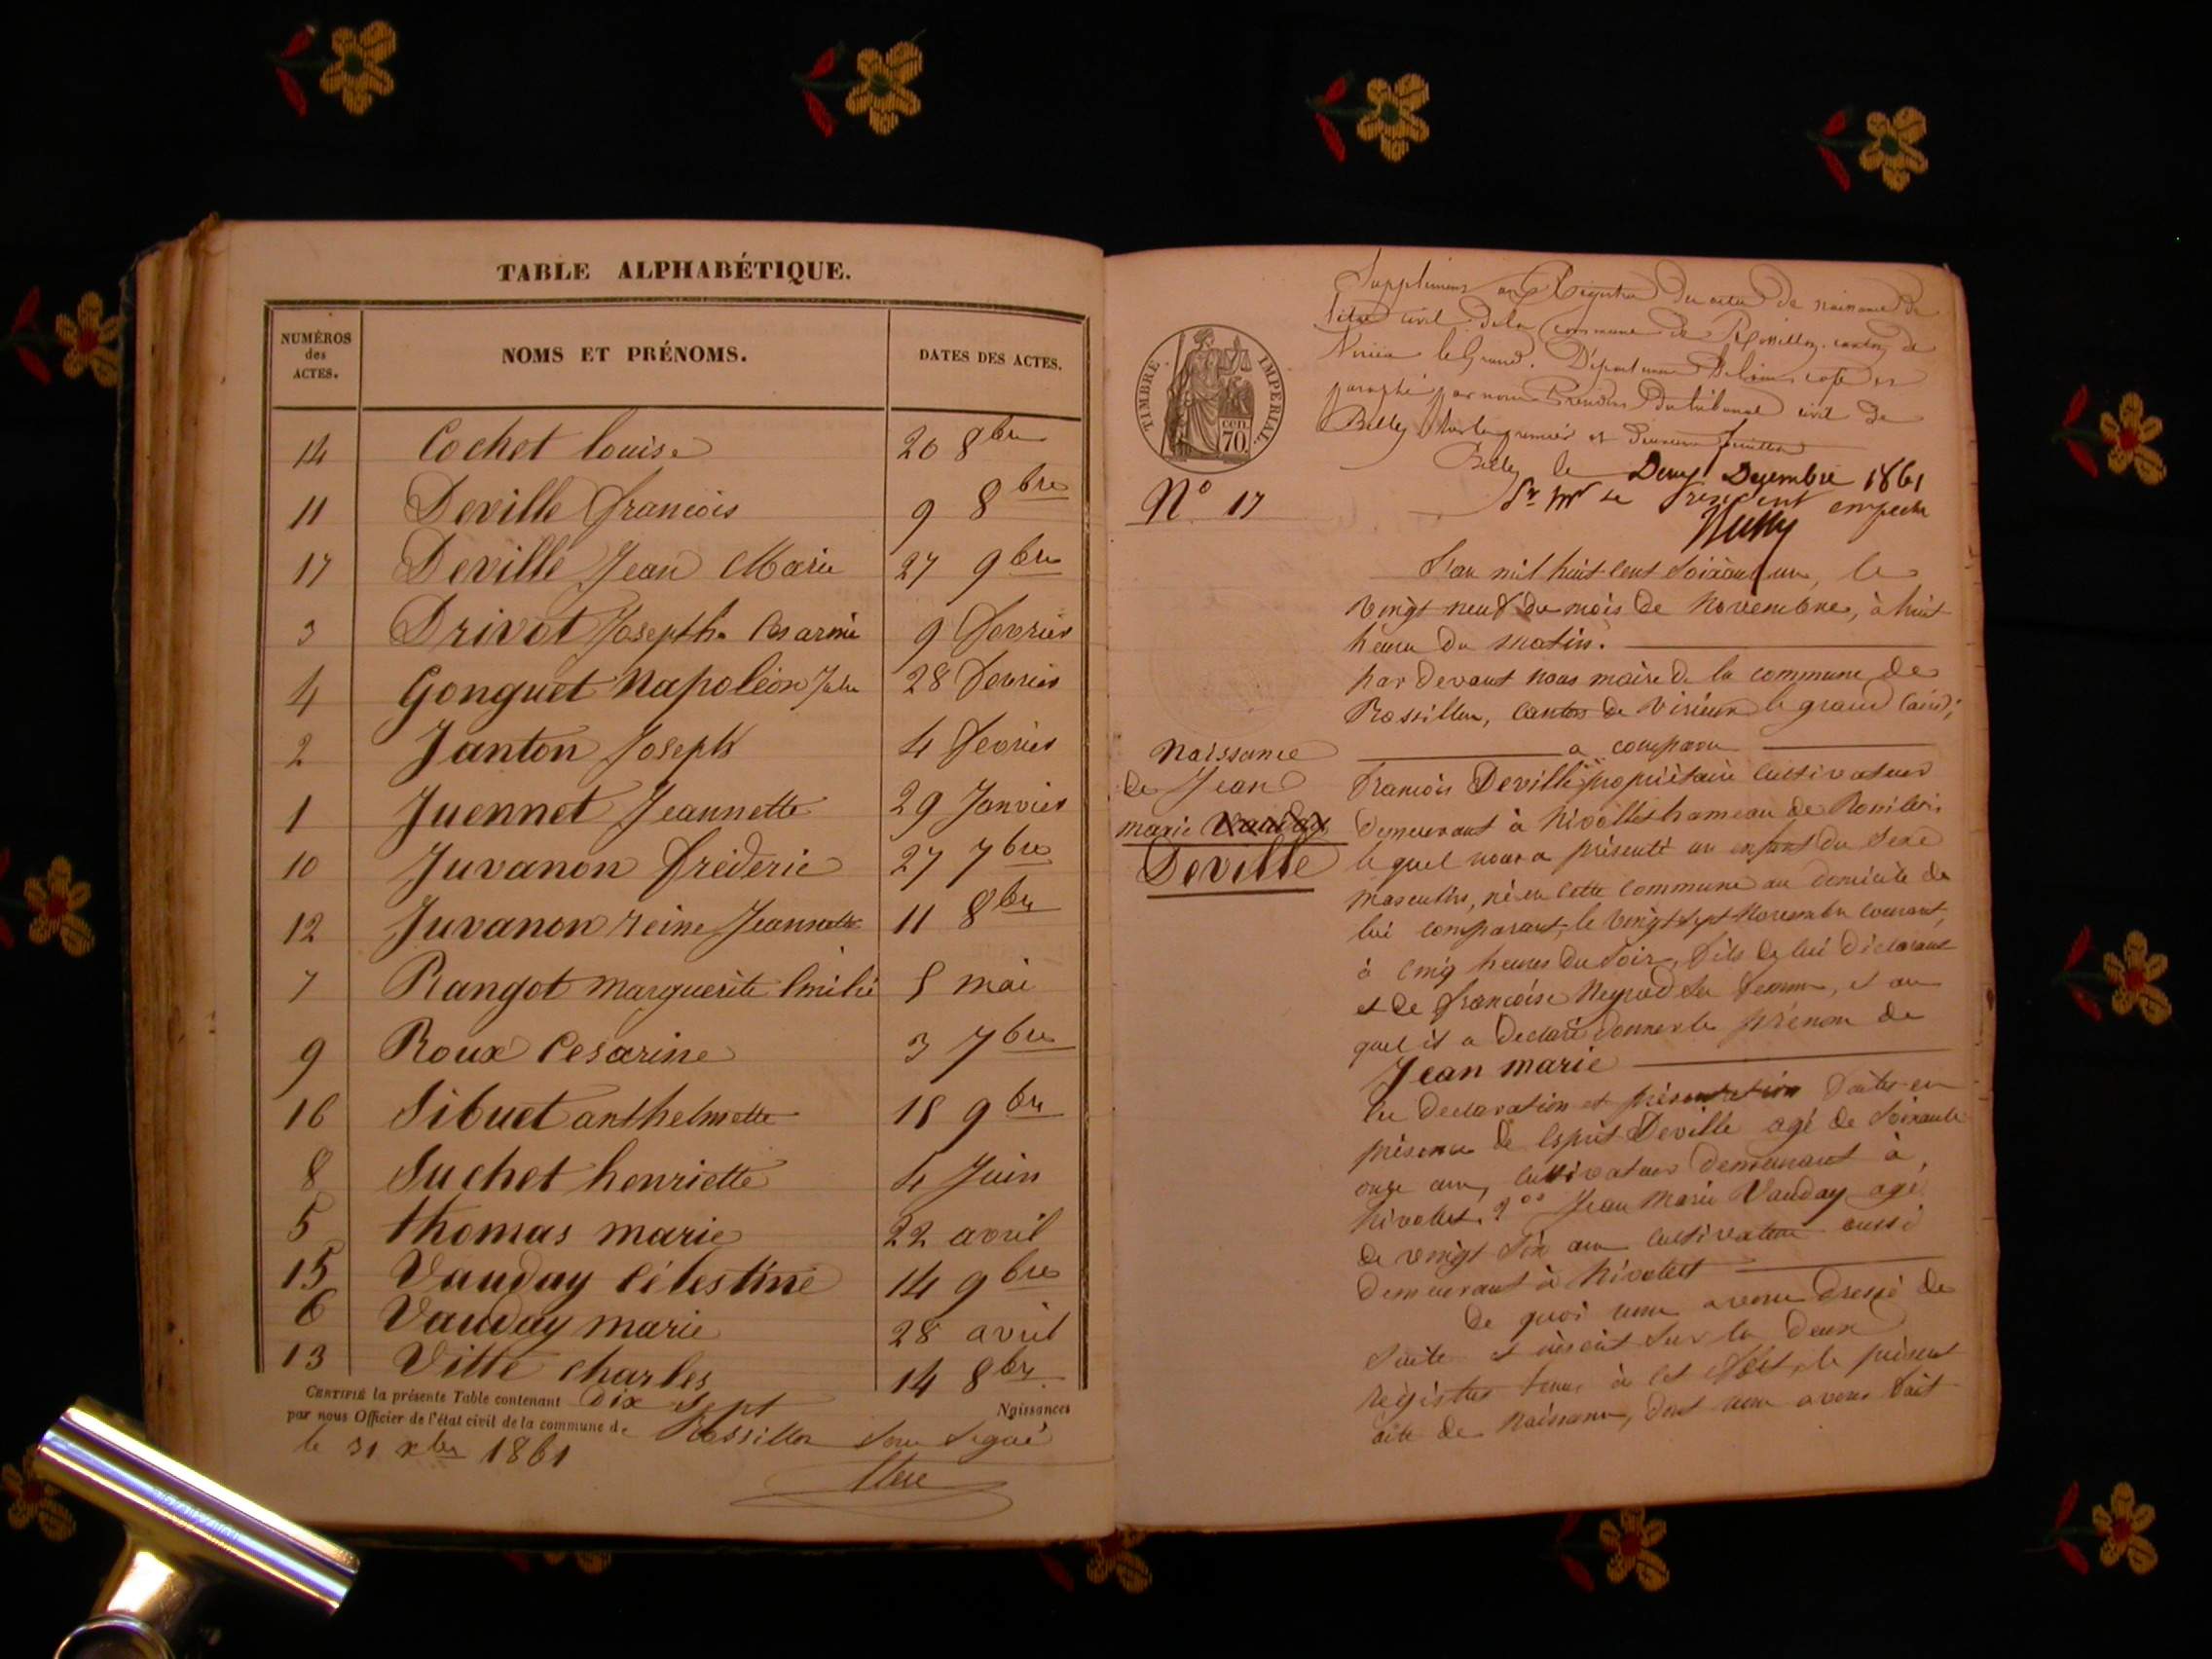 TABLE ALPHABÉTIQUE.
NUMÉROS des ACTES.
NOMS ET PRÉNOMS.
DATES DES ACTES.
14 Cochet louise 20 8bre
11 Deville françois 9 8bre
17 Deville Jean Marie 27 9bre
3 Drivet Josepth. Césarine 9 fevrier
4 Gonguet Napoléon Jules 28 fevrier
2 Janton Joseph 4 fevrier
1 Juennet Jeannette 29 Janvier
10 Juvanon fréderic 27 7bre
12 Juvanon reine Jeannette 11 8bre
7 Rangot marguerite Emilie 5 mai
9 Roux Cesarine 3 7bre
16 Sibuet anthelmette 15 9bre
8 Suchet henriette 4 Juin
5 thomas marie 22 avril
15 Vauday Célestine 14 9bre
6 Vauday marie 28 avril
13 Vitte charles 14 8bre
CERTIFIÉ la présente Table contenant Dix sept Naissances
par nous Officier de l'état civil de la commune de Rossillon soussigné
le 31 xbre 1861
TIMBRE IMPERIAL.
cen. 70.
Supplément au Registre des actes de naissance de
l'état civil de la commune de Rossillon, canton de
Virieu le Grand. Département de l'ain, coté et
paraphé par nous Président du tribunal civil de
Belley sur les premier et dernier feuillets
Belley le Deux Decembre 1861
Pr Mr le President empeché
N° 17
L'an mil huit cent soixante un, le
vingt neuf du mois de Novembre, à huit
heures du matin.
par devant nous maire de la commune de
Rossillon, canton de Virieu le grand (ain);
a comparu
Naissance
de Jean
marie Vauday
Deville
françois Deville propriètaire cultivateur
demeurant à hivollet hameau de Rossillon
lequel nous a présenté un enfant du sexe
masculin, né en cette commune au domicile de
lui comparant, le vingt sept Novembre courant,
à cinq heures du soir, fils de lui déclarant
et de françoise Neyrod sa femme, et au
quel il a déclaré donner le prénom de
Jean marie
les declaration et présentation faites en
présence de Esprit Deville agé de soixante
onze ans, cultivateur demeurant à
hivollet. 2° Jean Marie Vauday agé
de vingt six ans cultivateur aussi
demeurant à hivollet
De quoi nous avons dressé de
suite et inscrit sur les deux
registres tenus à cet effet, le présent
acte de naissance, dont nous avons fait